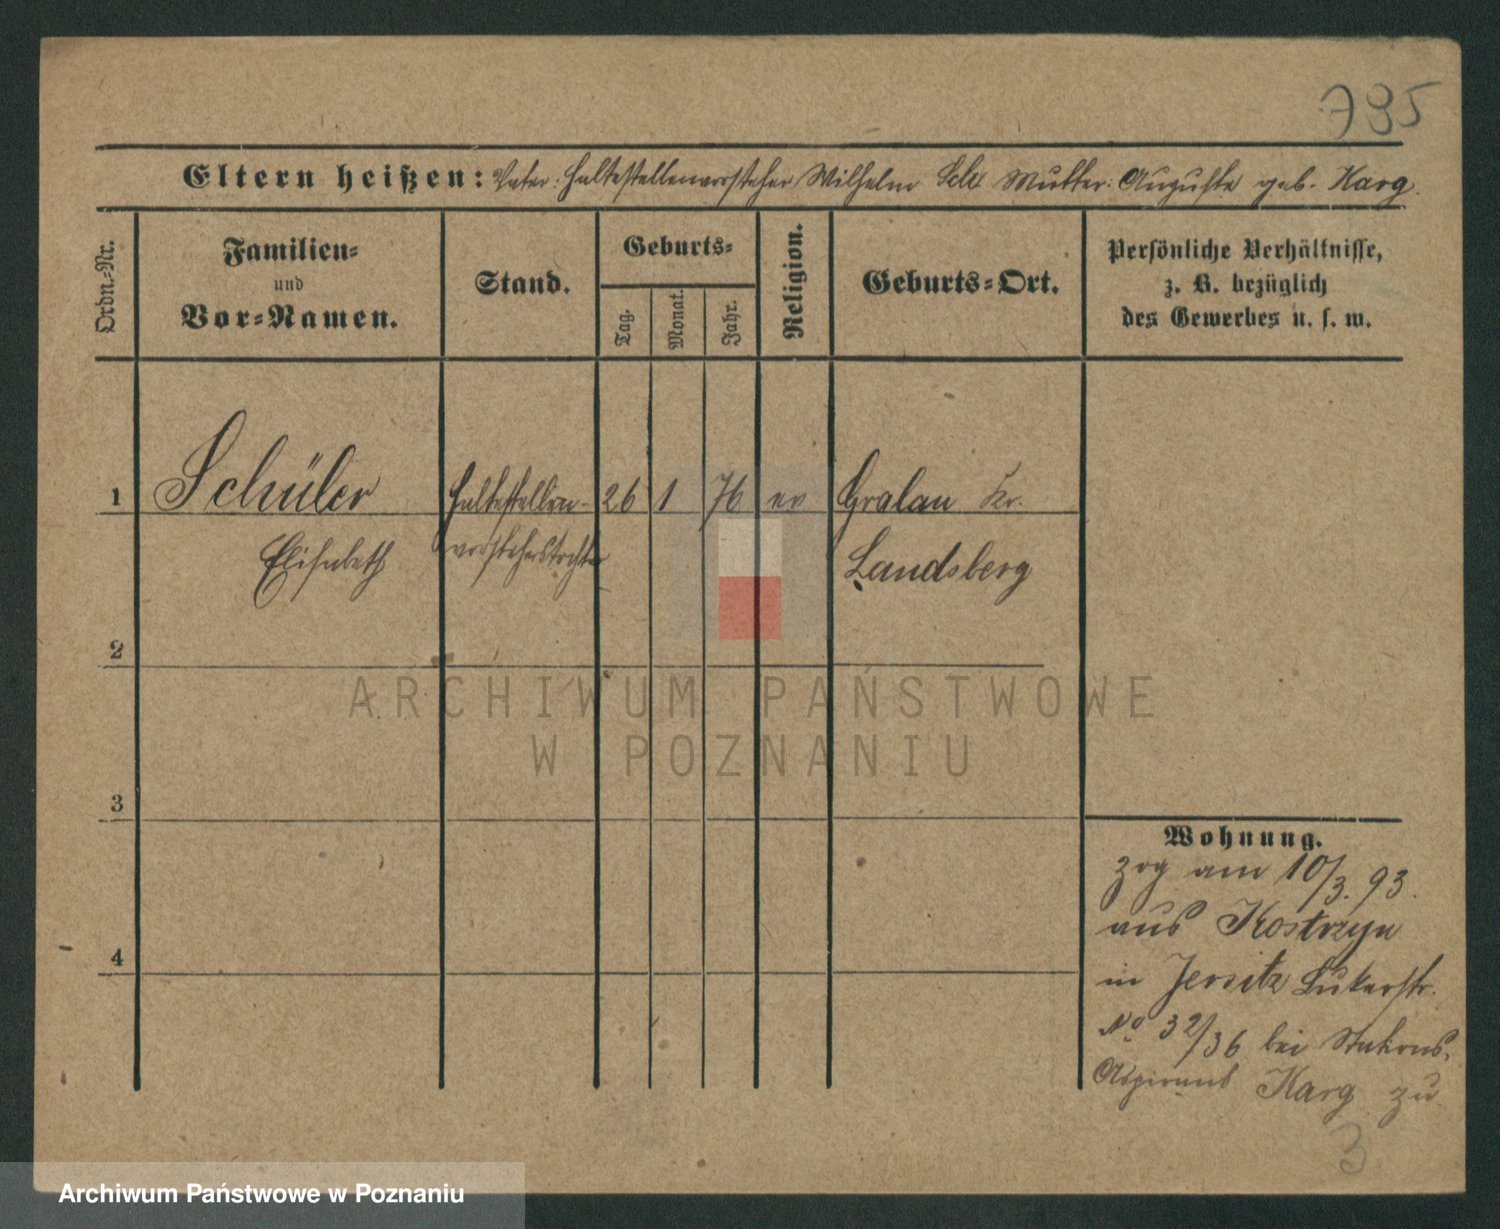 785
Eltern heißen: Vater: Haltestellenvorsteher Wilhelm Sch Mutter: Auguste geb. Karg.
Ordn.-Nr.
Familien-
und
Vor-Namen.
Stand.
Geburts-
Tag.
Monat.
Jahr.
Religion.
Geburts-Ort.
Persönliche Verhältnisse,
z. B. bezüglich
des Gewerbes u. s. w.
1 Schüler Haltestellen- 26 1 76 ev Gralau Kr.
Elisabeth vorstehertochter Landsberg
2
3
4
Wohnung.
zog am 10/3. 93.
aus Kostrzyn
in Jersitz
No 32/36 bei Stations-
Aspirant Karg zu
3
ARCHIWUM PAŃSTWOWE
W POZNANIU
Archiwum Państwowe w Poznaniu